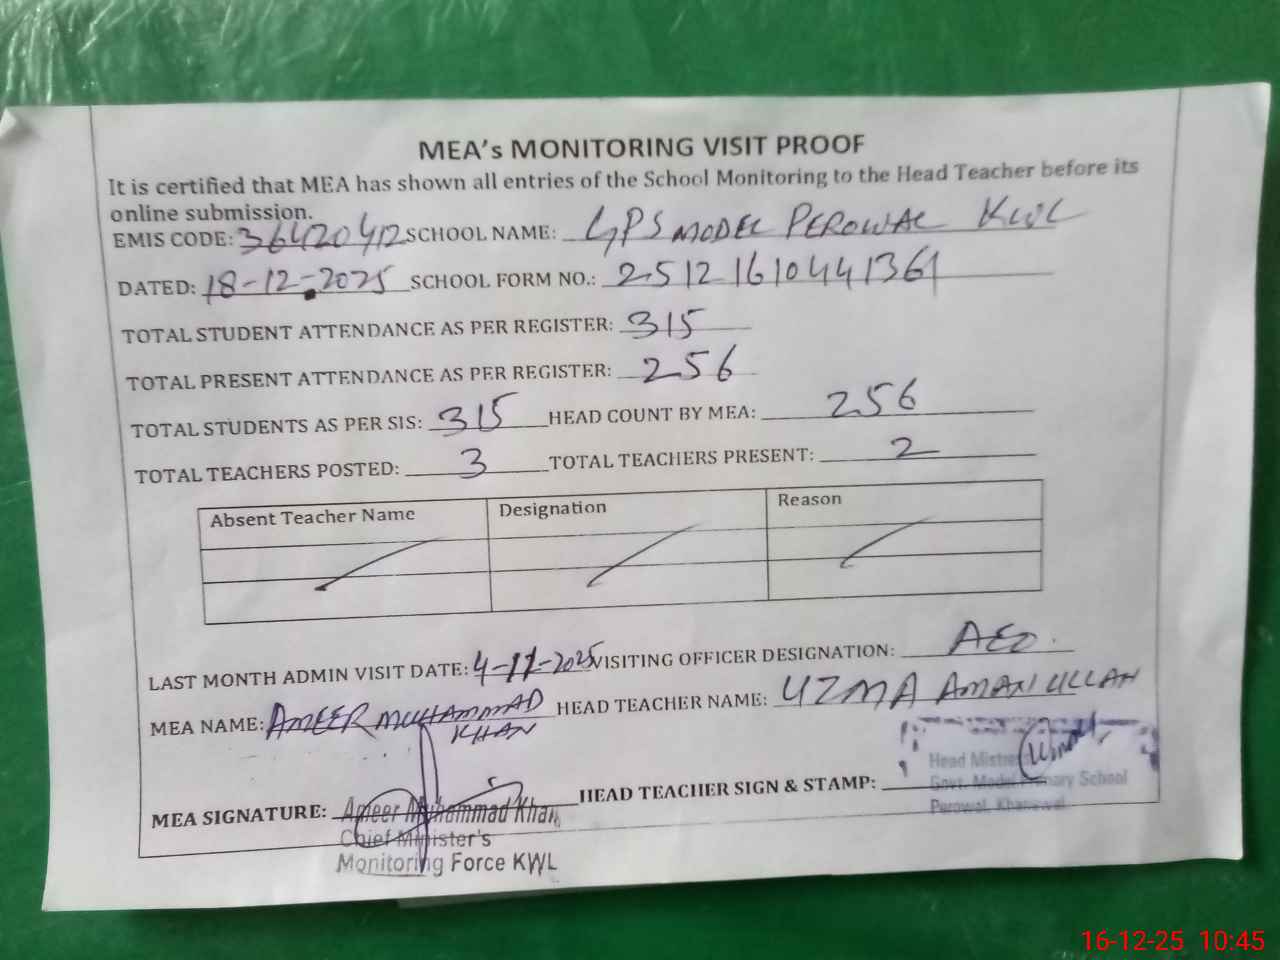 MEA's MONITORING VISIT PROOF
It is certified that MEA has shown all entries of the School Monitoring to the Head Teacher before its
online submission.
EMIS CODE: 36420412 SCHOOL NAME: GPS MODEL PEROWAL KWL
DATED: 18-12-2025 SCHOOL FORM NO.: 25121610441361
TOTAL STUDENT ATTENDANCE AS PER REGISTER: 315
TOTAL PRESENT ATTENDANCE AS PER REGISTER: 256
TOTAL STUDENTS AS PER SIS: 315 HEAD COUNT BY MEA: 256
TOTAL TEACHERS POSTED: 3 TOTAL TEACHERS PRESENT: 2
Absent Teacher Name Designation Reason
LAST MONTH ADMIN VISIT DATE: 4-11-2025 VISITING OFFICER DESIGNATION: AEO.
MEA NAME: AMEER MUHAMMAD KHAN HEAD TEACHER NAME: UZMA AMANULLAH
MEA SIGNATURE: Ameer Muhammad Khan HEAD TEACHER SIGN & STAMP:
Chief Minister's
Monitoring Force KWL
Head Mistress
Govt. Model Primary School
Perowal, Khanewal
16-12-25 10:45